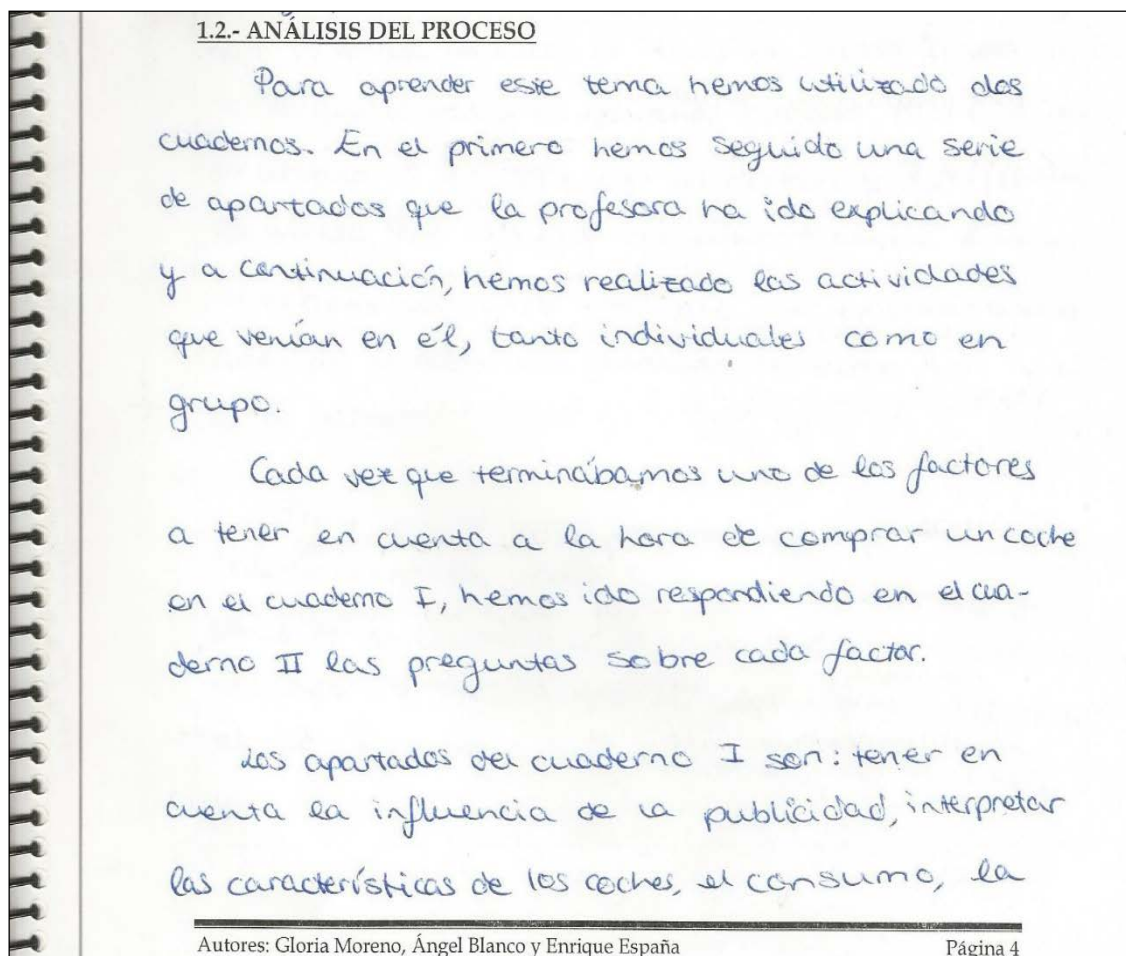 1.2.- ANÁLISIS DEL PROCESO
Para aprender este tema hemos utilizado dos
cuadernos. En el primero hemos seguido una serie
de apartados que la profesora ha ido explicando
y a continuación, hemos realizado las actividades
que venían en él, tanto individuales como en
grupo.
Cada vez que terminábamos uno de los factores
a tener en cuenta a la hora de comprar un coche
en el cuaderno I, hemos ido respondiendo en el cua-
derno II las preguntas sobre cada factor.
Los apartados del cuaderno I son: tener en
cuenta la influencia de la publicidad, interpretar
las características de los coches, el consumo, la
Autores: Gloria Moreno, Ángel Blanco y Enrique España Página 4